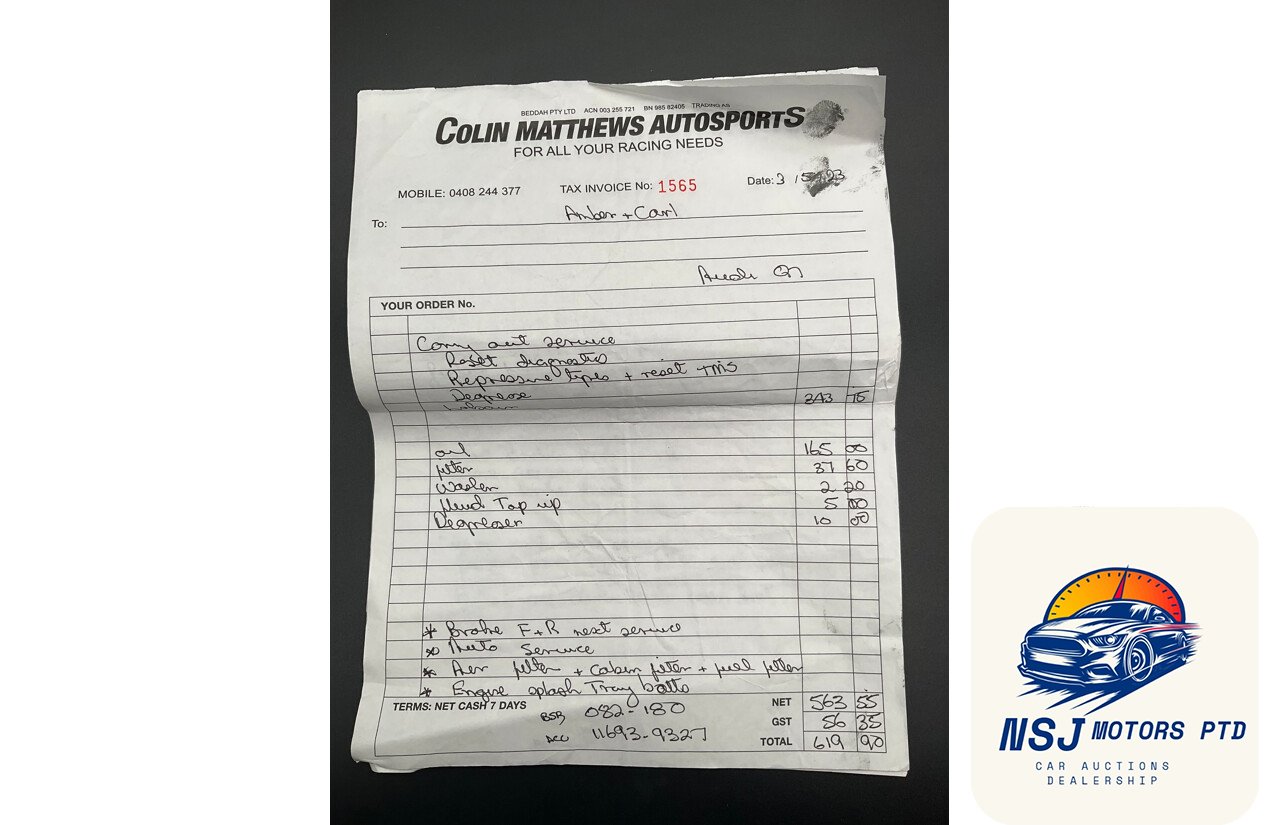 BEDDAH PTY LTD ACN 003 255 721 BN 985 82405 TRADING AS
COLIN MATTHEWS AUTOSPORTS
FOR ALL YOUR RACING NEEDS
MOBILE: 0408 244 377 TAX INVOICE No: 1565 Date: 3 / 23
To: Amber + Carl
Audi Q7
YOUR ORDER No.
Carry out service
Reset diagnostics
Repressure tyres + reset TMS
Degrease
Labour 343 75
oil 165 00
filter 37 60
Washer 2 20
fluid Top up 5 00
Degreaser 10 00
* Brake F+R next service
* Auto Service
* Air filter + Cabin filter + fuel filter
* Engine splash Tray bolts
TERMS: NET CASH 7 DAYS NET 563 55
BSB 082-180 GST 56 35
ACC 11693-9327 TOTAL 619 90
NSJ MOTORS PTD
CAR AUCTIONS
DEALERSHIP